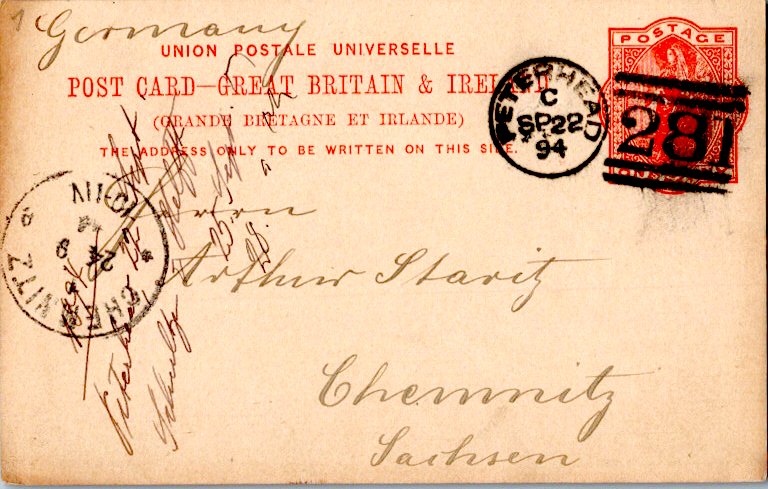 Germany
UNION POSTALE UNIVERSELLE
POST CARD—GREAT BRITAIN & IRELAND
(GRANDE BRETAGNE ET IRLANDE)
THE ADDRESS ONLY TO BE WRITTEN ON THIS SIDE.
POSTAGE
PETERHEAD
C
SP22
94
281
CHEMNITZ
24 9
Herrn
Arthur Staritz
Chemnitz
Sachsen
Peterhead 22
Schultz
23. Sept.